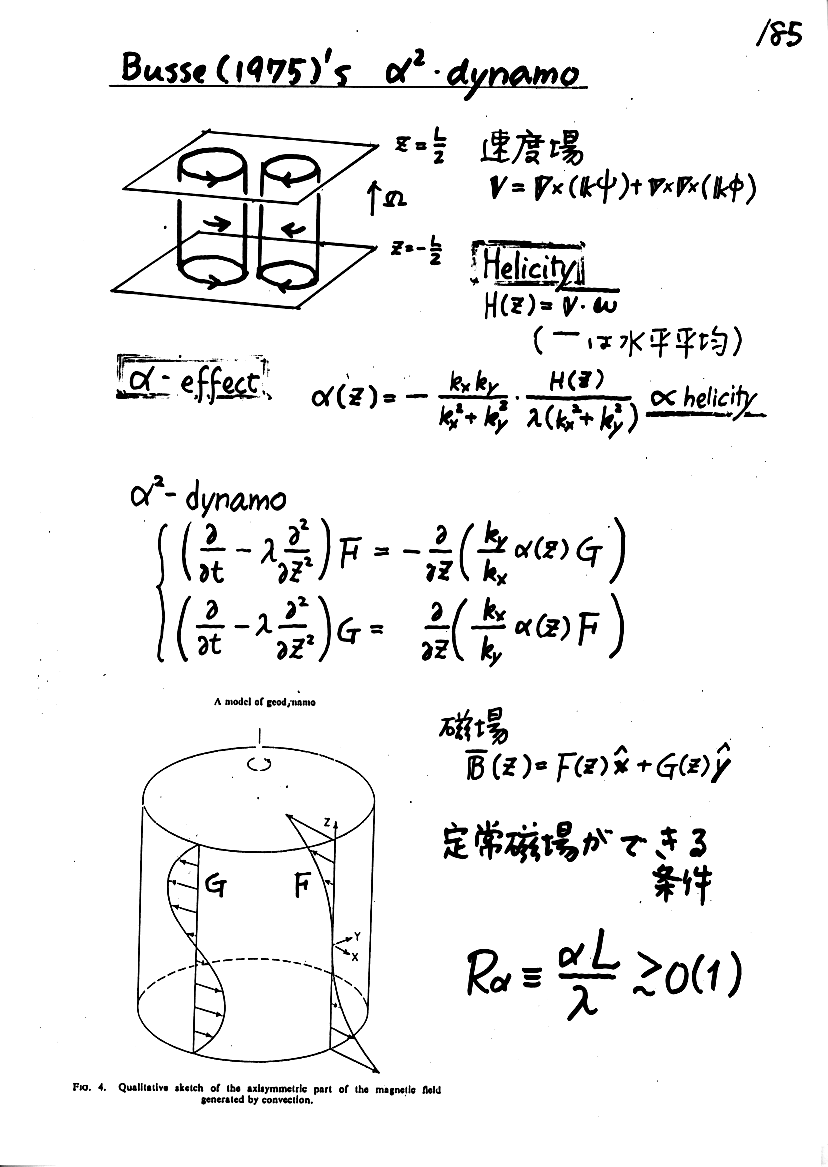 185
Busse (1975)'s α²-dynamo
Z = L/2
Ω
Z = -L/2
速度場
V = ∇×(kψ) + ∇×∇×(kφ)
Helicity
H(Z) = V·ω
(一は水平平均)
α-effect
α(Z) = - kxky/(kx²+ky²) · H(Z)/(λ(kx²+ky²)) ∝ helicity
α²-dynamo
(∂/∂t - λ ∂²/∂Z²) F = - ∂/∂Z (ky/kx α(Z) G)
(∂/∂t - λ ∂²/∂Z²) G = ∂/∂Z (kx/ky α(Z) F)
A model of geodynamo
Z
G
F
Y
X
磁場
B̅(Z) = F(Z)x̂ + G(Z)ŷ
定常磁場ができる
条件
Rα ≡ αL/λ ≳ O(1)
FIG. 4. Qualitative sketch of the axisymmetric part of the magnetic field
generated by convection.